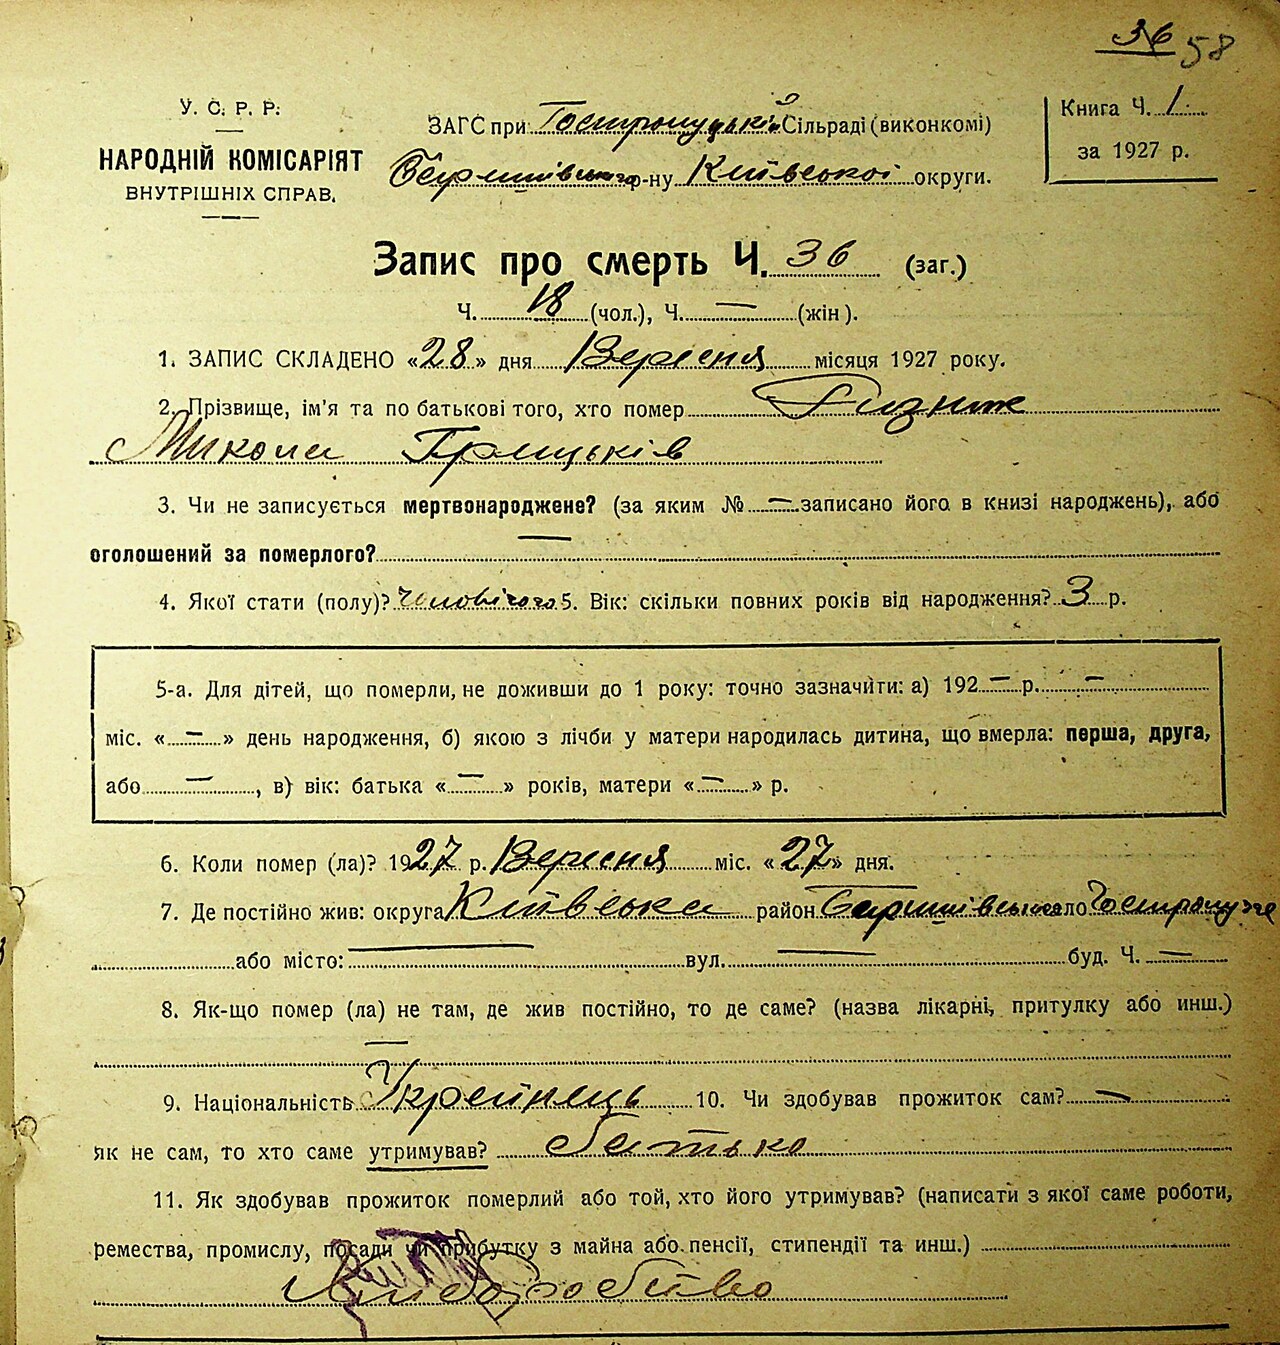 36 58
У. С. Р. Р.
НАРОДНІЙ КОМІСАРІЯТ
ВНУТРІШНІХ СПРАВ.
ЗАГС при Гостролуцькій Сільраді (виконкомі)
Баришівського р-ну Київської округи.
Книга Ч. 1
за 1927 р.
Запис про смерть Ч. 36 (заг.)
Ч. 18 (чол.), Ч. — (жін).
1. ЗАПИС СКЛАДЕНО «28» дня Вересня місяця 1927 року.
2. Прізвище, ім'я та по батькові того, хто помер
Микола Грицьків
3. Чи не записується мертвонароджене? (за яким № — записано його в книзі народжень), або
оголошений за померлого? —
4. Якої стати (полу)? Чоловічого 5. Вік: скільки повних років від народження? 3 р.
5-а. Для дітей, що померли, не доживши до 1 року: точно зазначити: а) 192 — р. —
міс. « — » день народження, б) якою з лічби у матери народилась дитина, що вмерла: перша, друга,
або —, в) вік: батька « — » років, матери « — » р.
6. Коли помер (ла)? 1927 р. Вересня міс. «27» дня.
7. Де постійно жив: округа Київська район Баришівський село Гостролуччє
або місто: — вул. — буд. Ч. —
8. Як-що помер (ла) не там, де жив постійно, то де саме? (назва лікарні, притулку або инш.)
—
9. Національність Украйнець 10. Чи здобував прожиток сам? —
як не сам, то хто саме утримував? батько
11. Як здобував прожиток померлий або той, хто його утримував? (написати з якої саме роботи,
ремества, промислу, посади чи прибутку з майна або пенсії, стипендії та инш.)